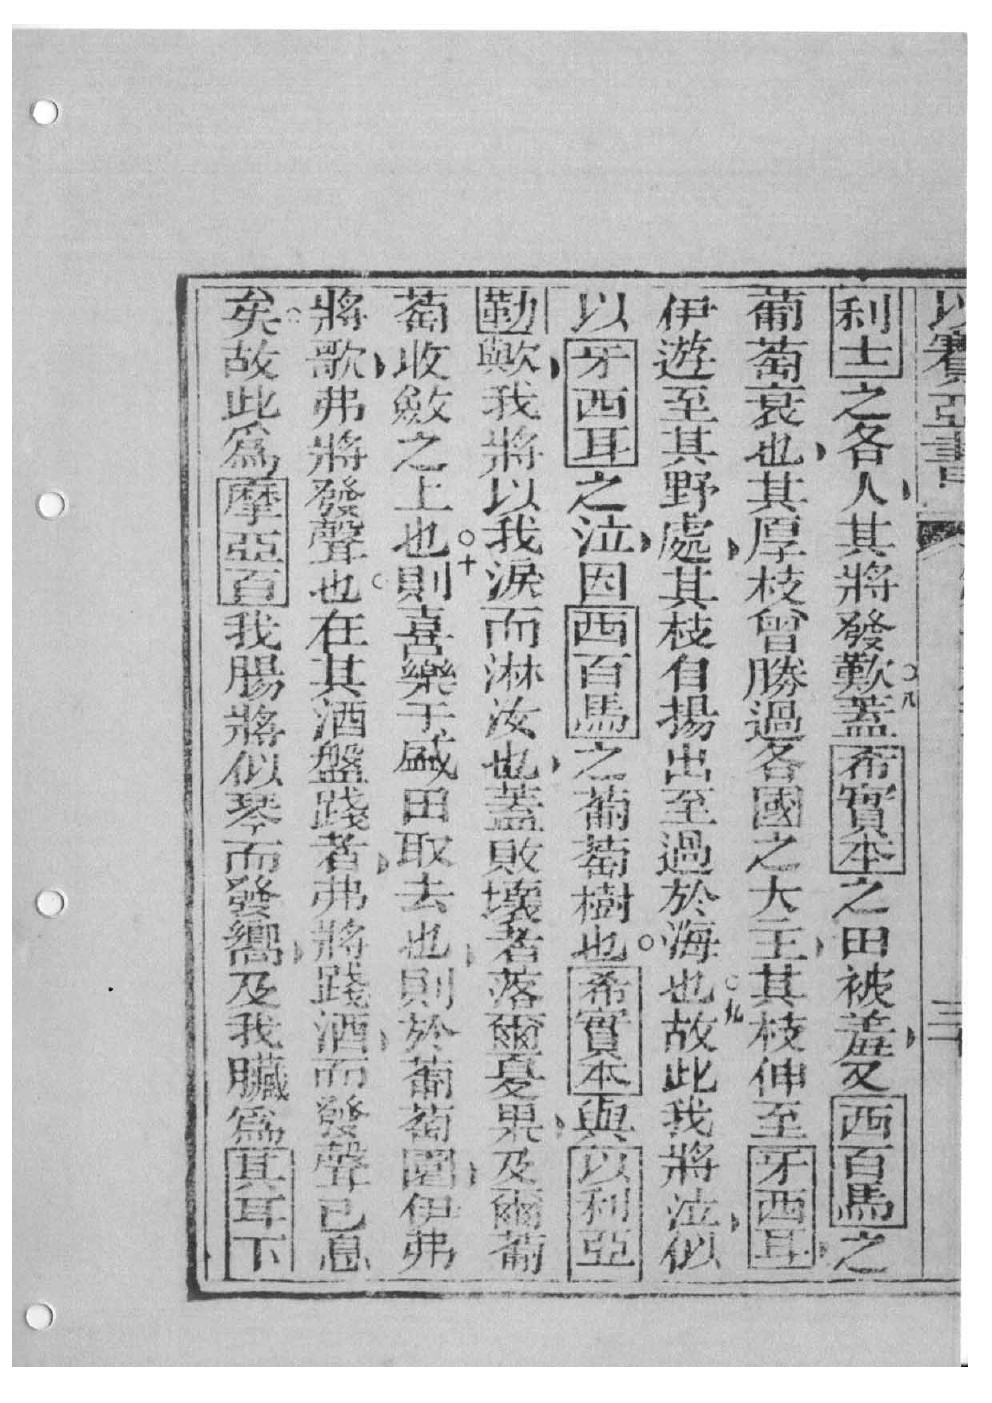 以賽亞書
利士之各人其將發歎○八蓋希實本之田被羞及西百馬之
葡萄衰也其厚枝曾勝過各國之大王其枝伸至牙西耳
伊遊至其野處其枝自揚出至過於海也○九故此我將泣似
以牙西耳之泣因西百馬之葡萄樹也○希實本與以利亞
勒歟我將以我淚而淋汝也蓋敗壞者落爾夏果及爾葡
萄收斂之上也○十則喜樂于盛田取去也則於葡萄園伊弗
將歌弗將發聲也○在其酒盤踐者弗將踐酒而發聲已息
矣○故此為摩亞百我腸將似琴而發嚮及我臟為其耳下